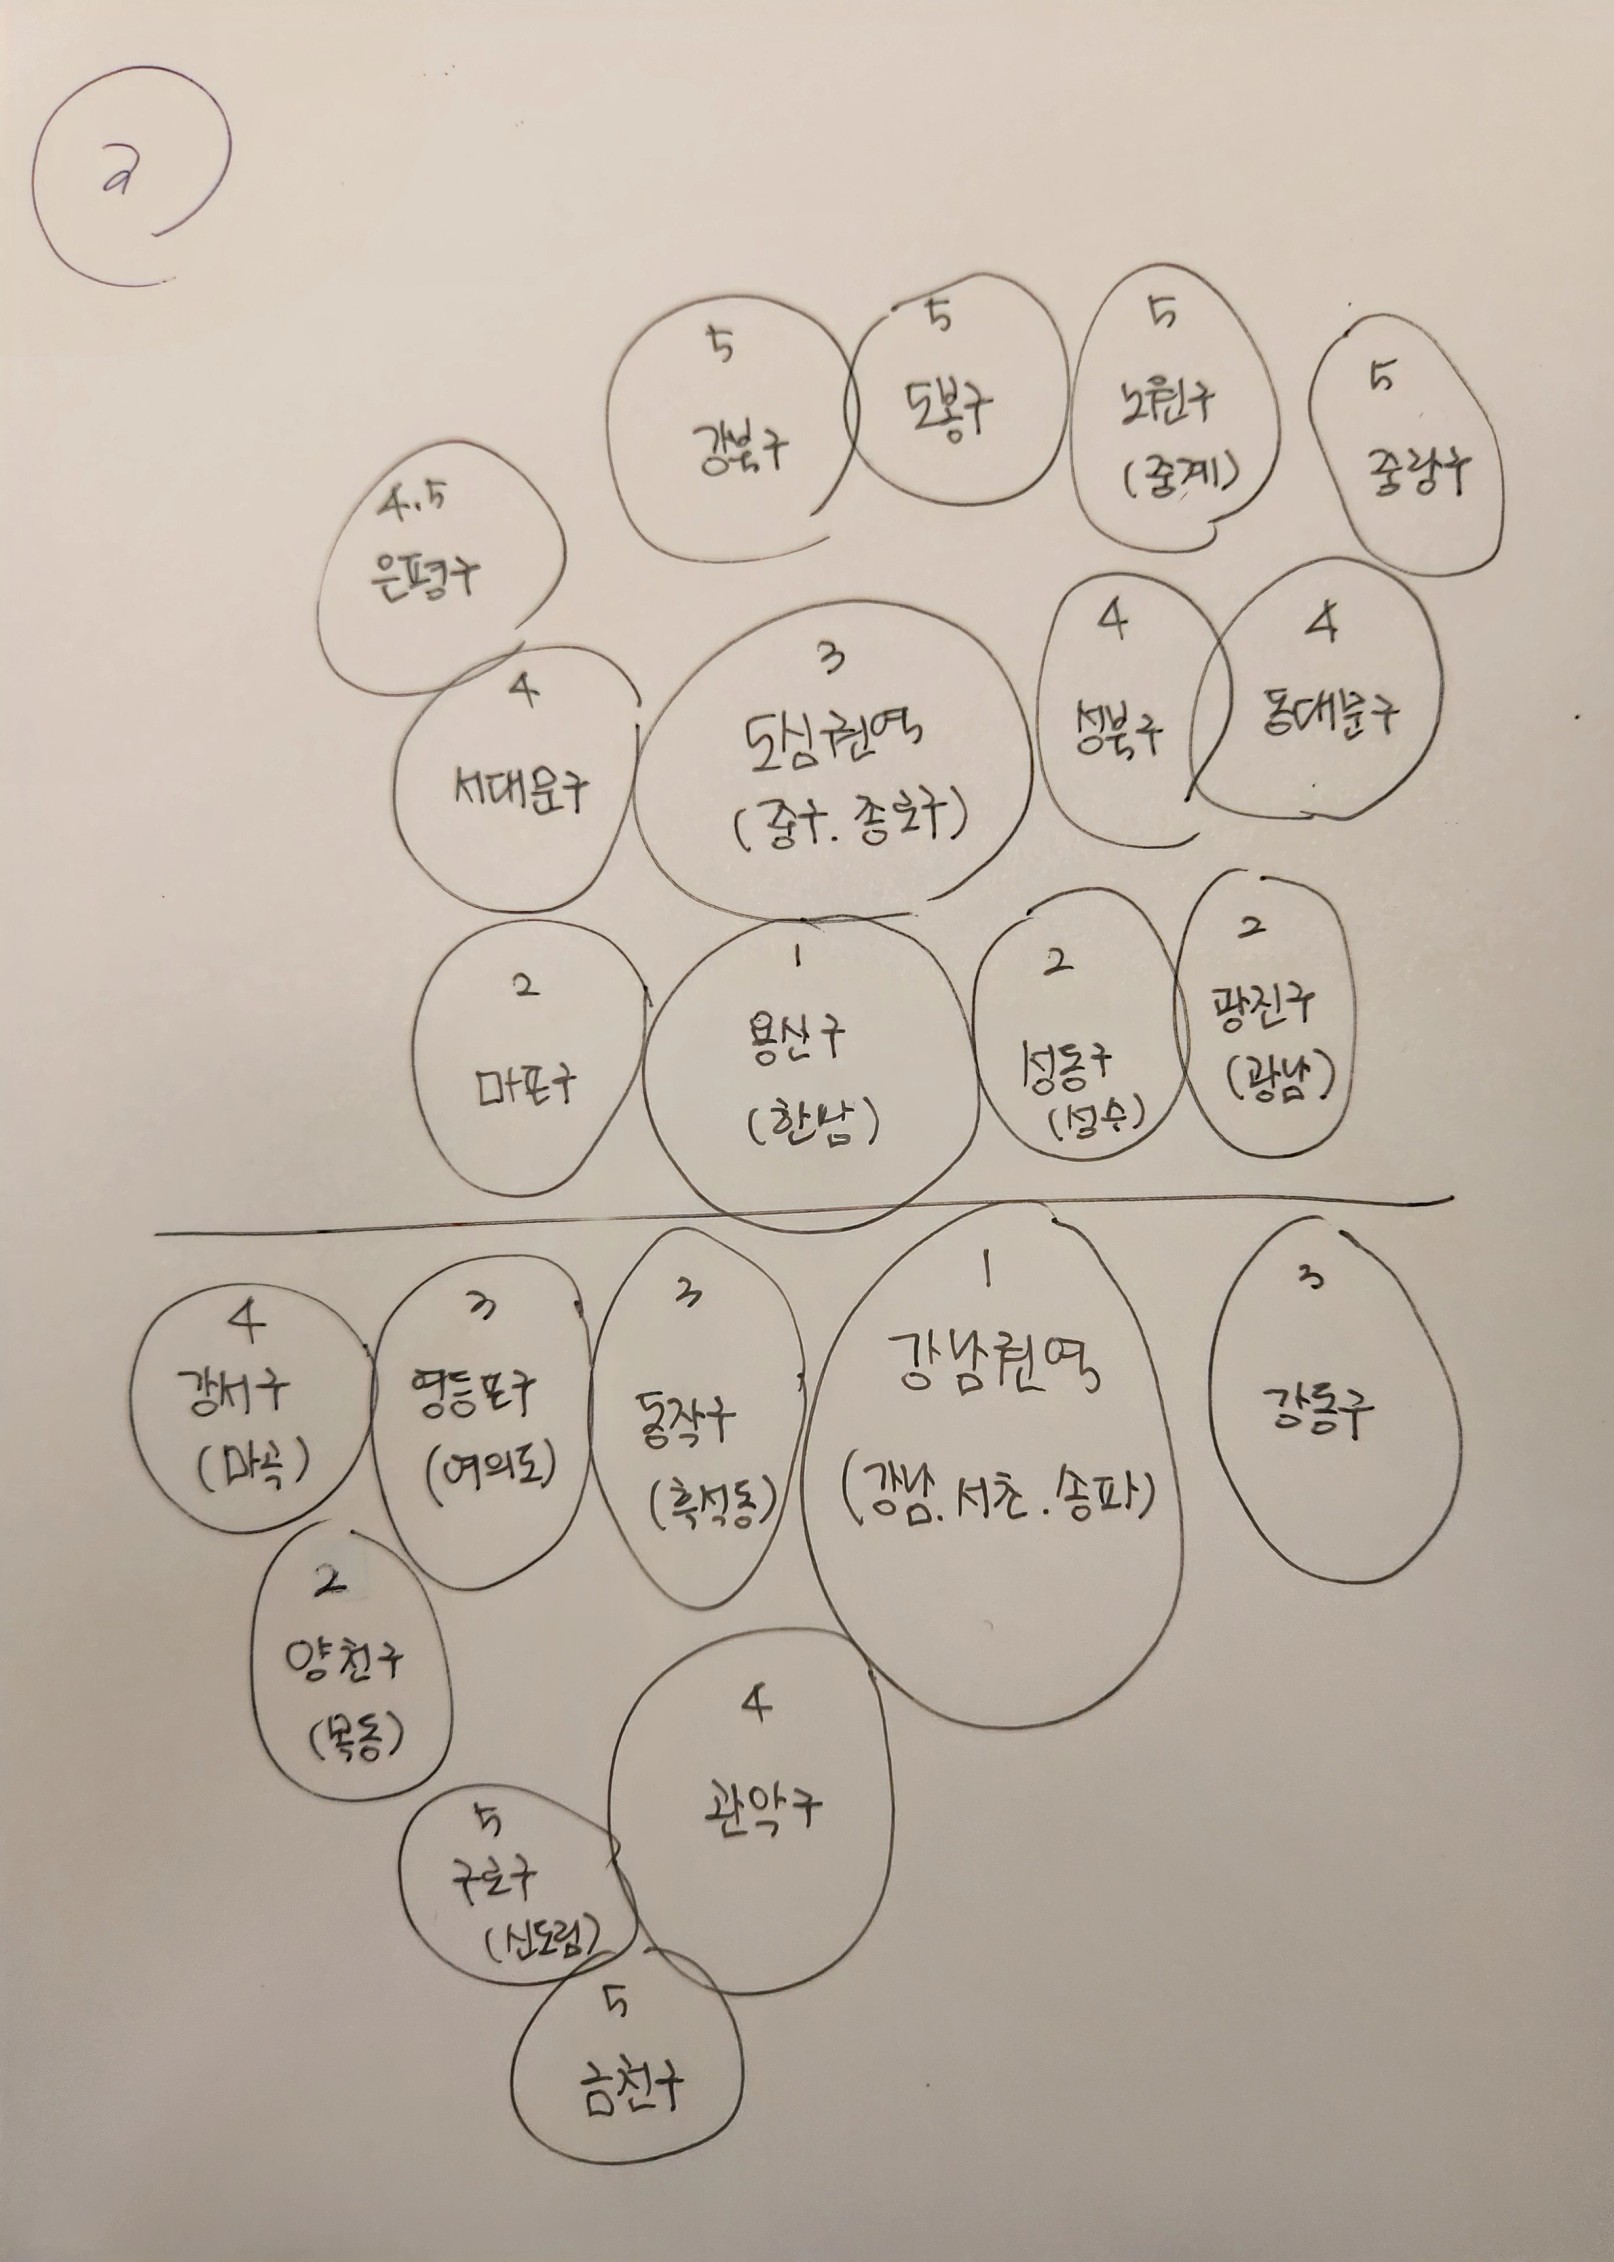 2
5
강북구
5
도봉구
5
노원구
(중계)
5
중랑구
4.5
은평구
4
서대문구
3
도심권역
(중구. 종로구)
4
성북구
4
동대문구
2
마포구
1
용산구
(한남)
2
성동구
(성수)
2
광진구
(광남)
4
강서구
(마곡)
3
영등포구
(여의도)
3
동작구
(흑석동)
1
강남권역
(강남. 서초. 송파)
3
강동구
2
양천구
(목동)
4
관악구
5
구로구
(신도림)
5
금천구